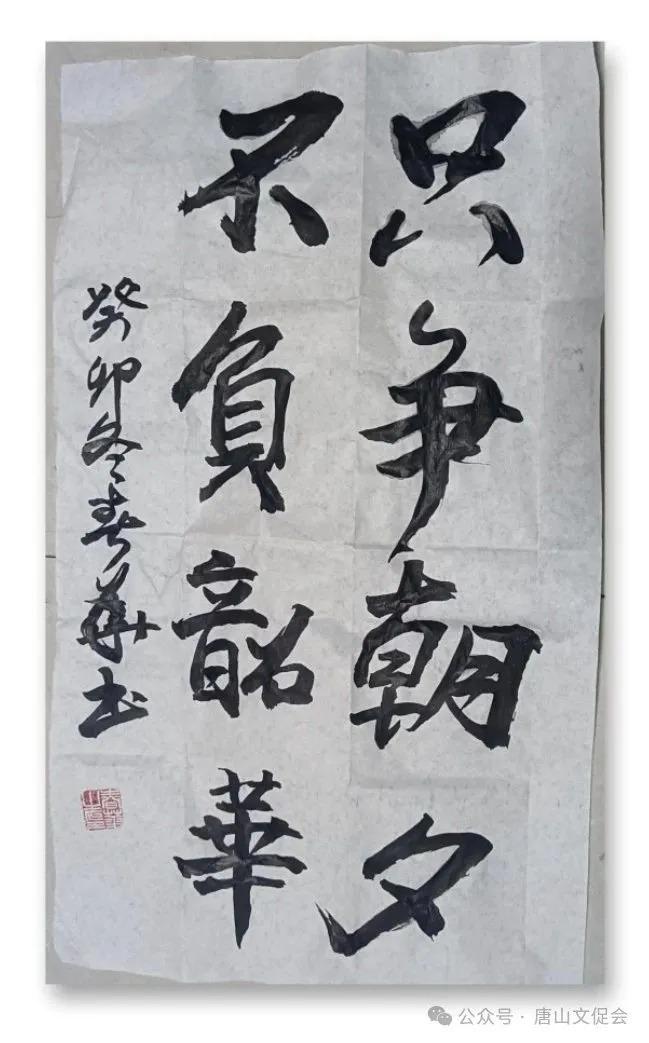 只争朝夕
不負韶華
癸卯冬春華书
公众号·唐山文促会